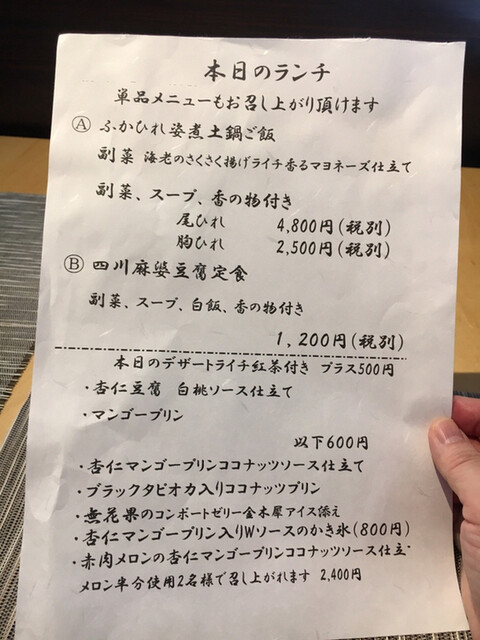 本日のランチ
単品メニューもお召し上がり頂けます
Ⓐ ふかひれ姿煮土鍋ご飯
副菜 海老のさくさく揚げライチ香るマヨネーズ仕立て
副菜、スープ、香の物付き
尾ひれ 4,800円(税別)
胸ひれ 2,500円(税別)
Ⓑ 四川麻婆豆腐定食
副菜、スープ、白飯、香の物付き
1,200円(税別)
本日のデザートライチ紅茶付き プラス500円
・杏仁豆腐 白桃ソース仕立て
・マンゴープリン
以下600円
・杏仁マンゴープリンココナッツソース仕立て
・ブラックタピオカ入りココナッツプリン
・無花果のコンポートゼリー金木犀アイス添え
・杏仁マンゴープリン入りWソースのかき氷(800円)
・赤肉メロンの杏仁マンゴープリンココナッツソース仕立
メロン半分使用2名様で召し上がれます 2,400円